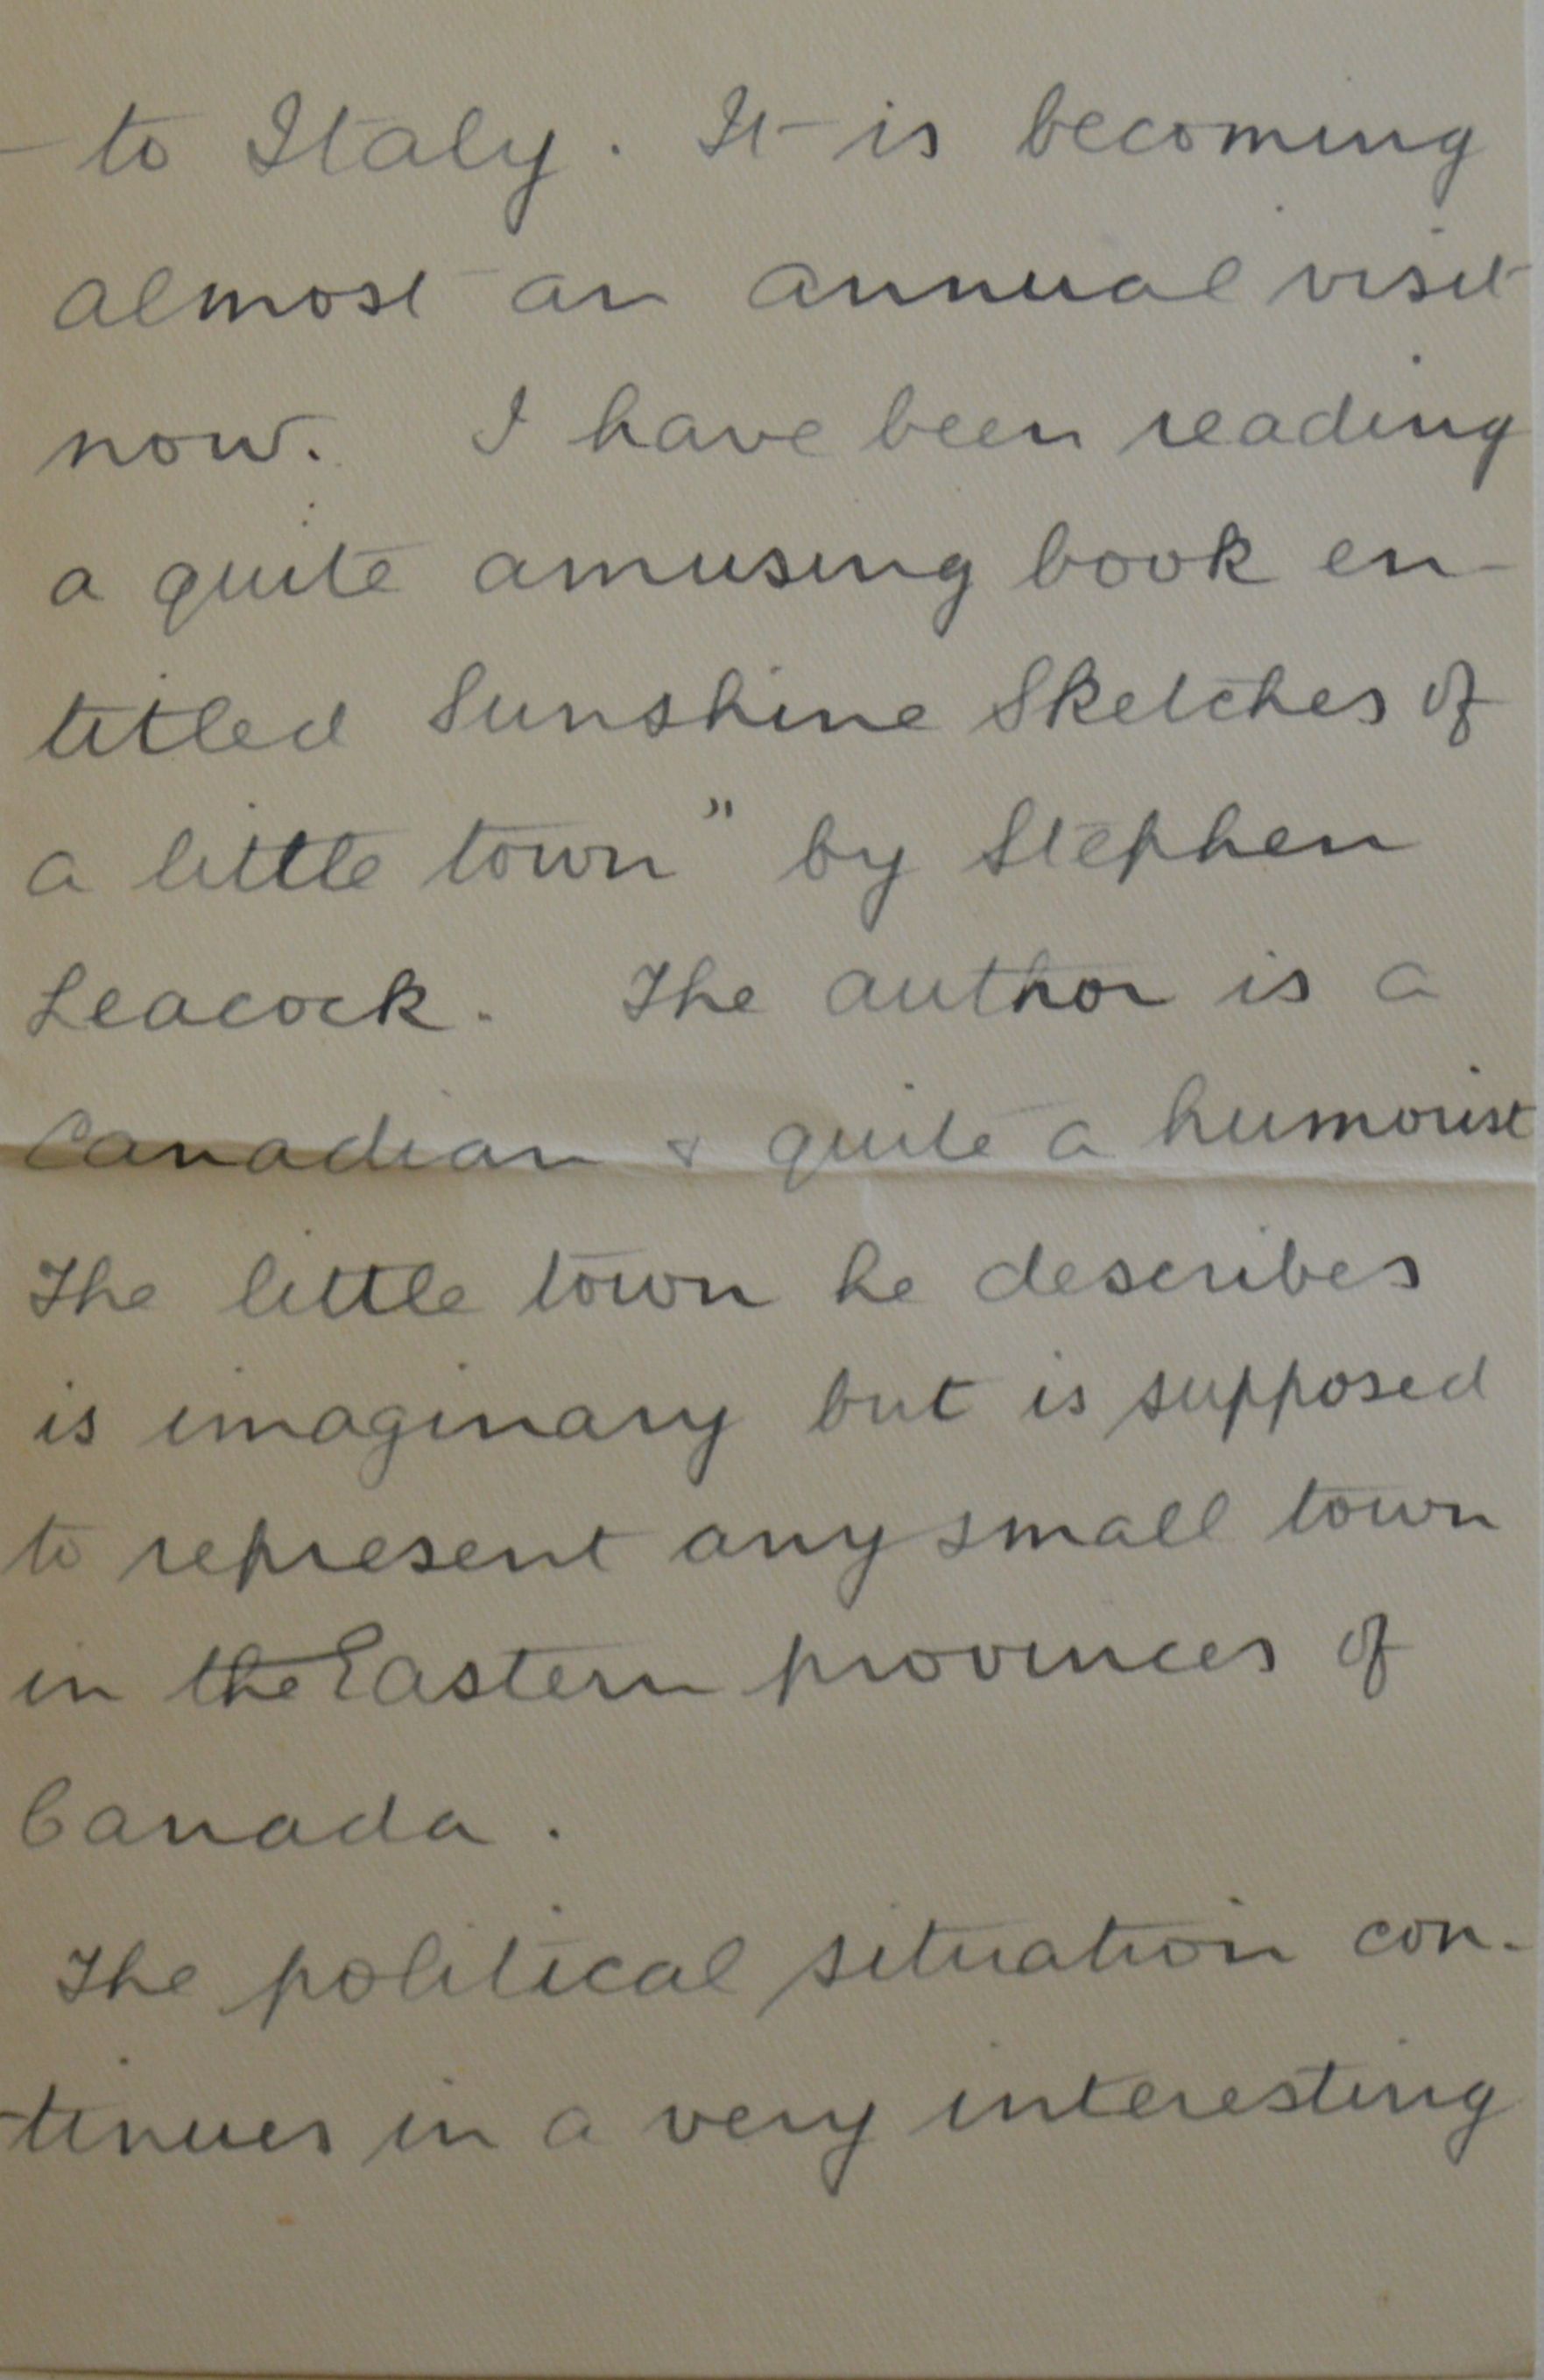 to Italy. It is becoming
almost an annual visit
now. I have been reading
a quite amusing book en-
titled Sunshine Sketches of
a little town" by Stephen
Leacock. The author is a
Canadian & quite a humorist
The little town he describes
is imaginary but is supposed
to represent any small town
in the Eastern provinces of
Canada.
The political situation con-
tinues in a very interesting